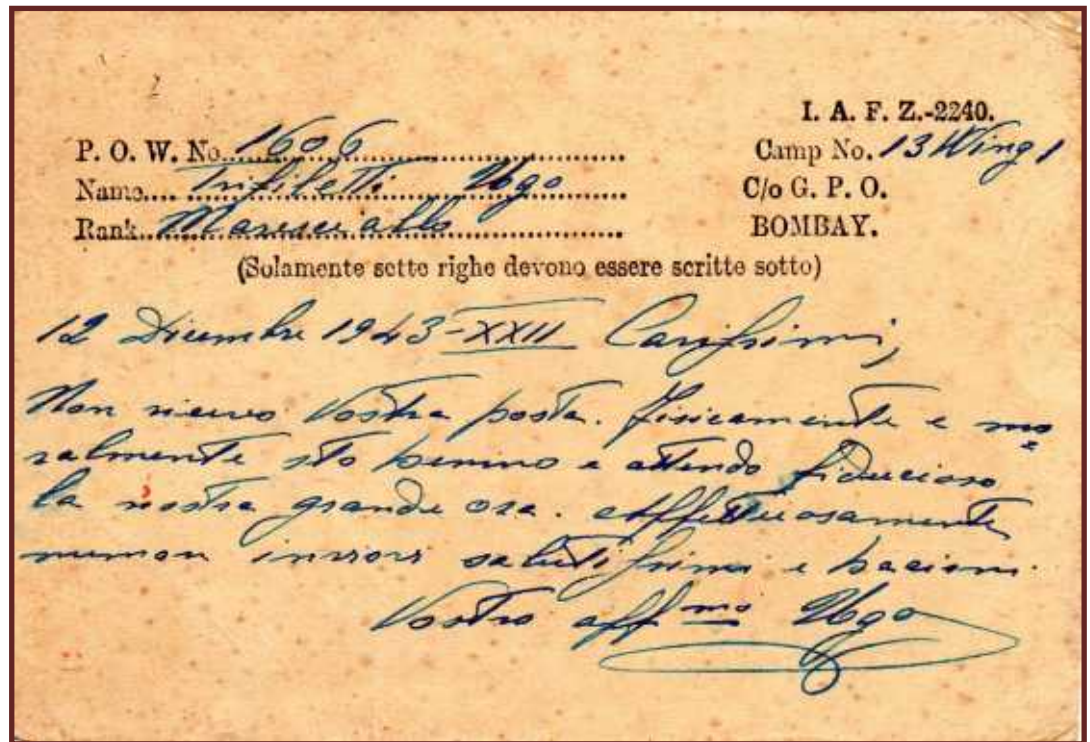 I. A. F. Z.-2240.
P. O. W. No. 1606
Camp No. 13 Wing 1
Name.... Trifiletti Ugo
C/o G. P. O.
Rank.. Maresciallo
BOMBAY.
(Solamente sette righe devono essere scritte sotto)
12 Dicembre 1943-XXII Carissimi,
Non ricevo Vostra posta. Fisicamente e mo
ralmente sto benino e attendo fiducioso
la nostra grande ora. Affettuosamente
inviovi salutissimi e bacioni.
Vostro aff mo Ugo